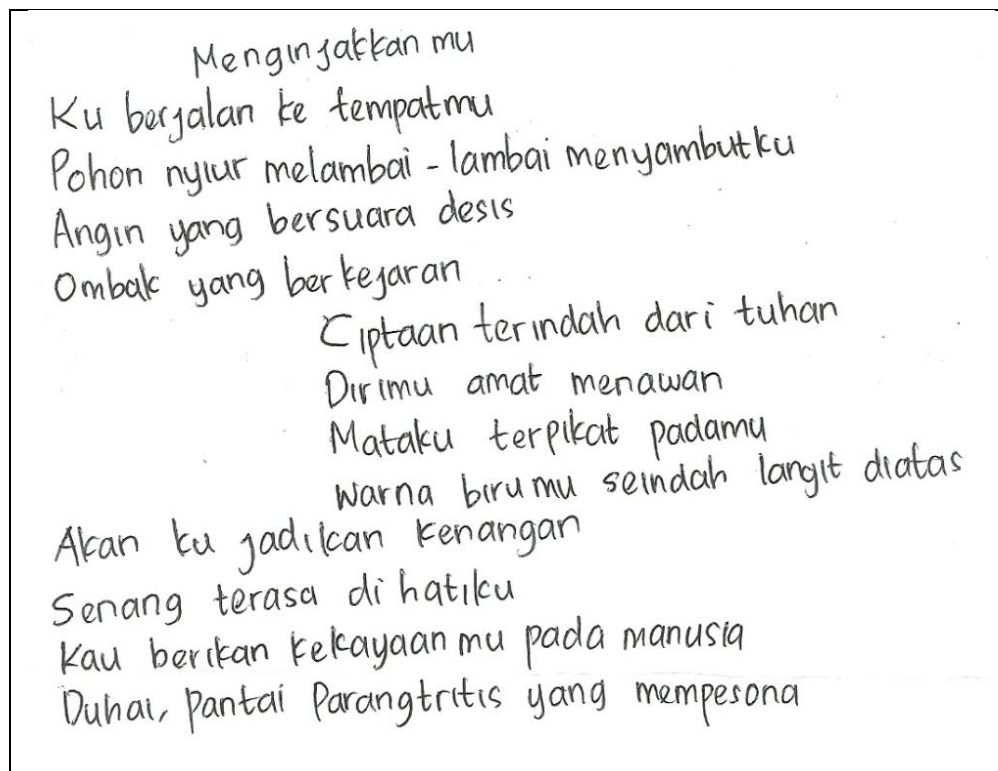 Menginjakkan mu
Ku berjalan ke tempatmu
Pohon nyiur melambai - lambai menyambutku
Angin yang bersuara desis
Ombak yang berkejaran
Ciptaan terindah dari tuhan
Dirimu amat menawan
Mataku terpikat padamu
Warna birumu seindah langit diatas
Akan ku jadikan kenangan
Senang terasa di hatiku
Kau berikan kekayaan mu pada manusia
Duhai, Pantai Parangtritis yang mempesona